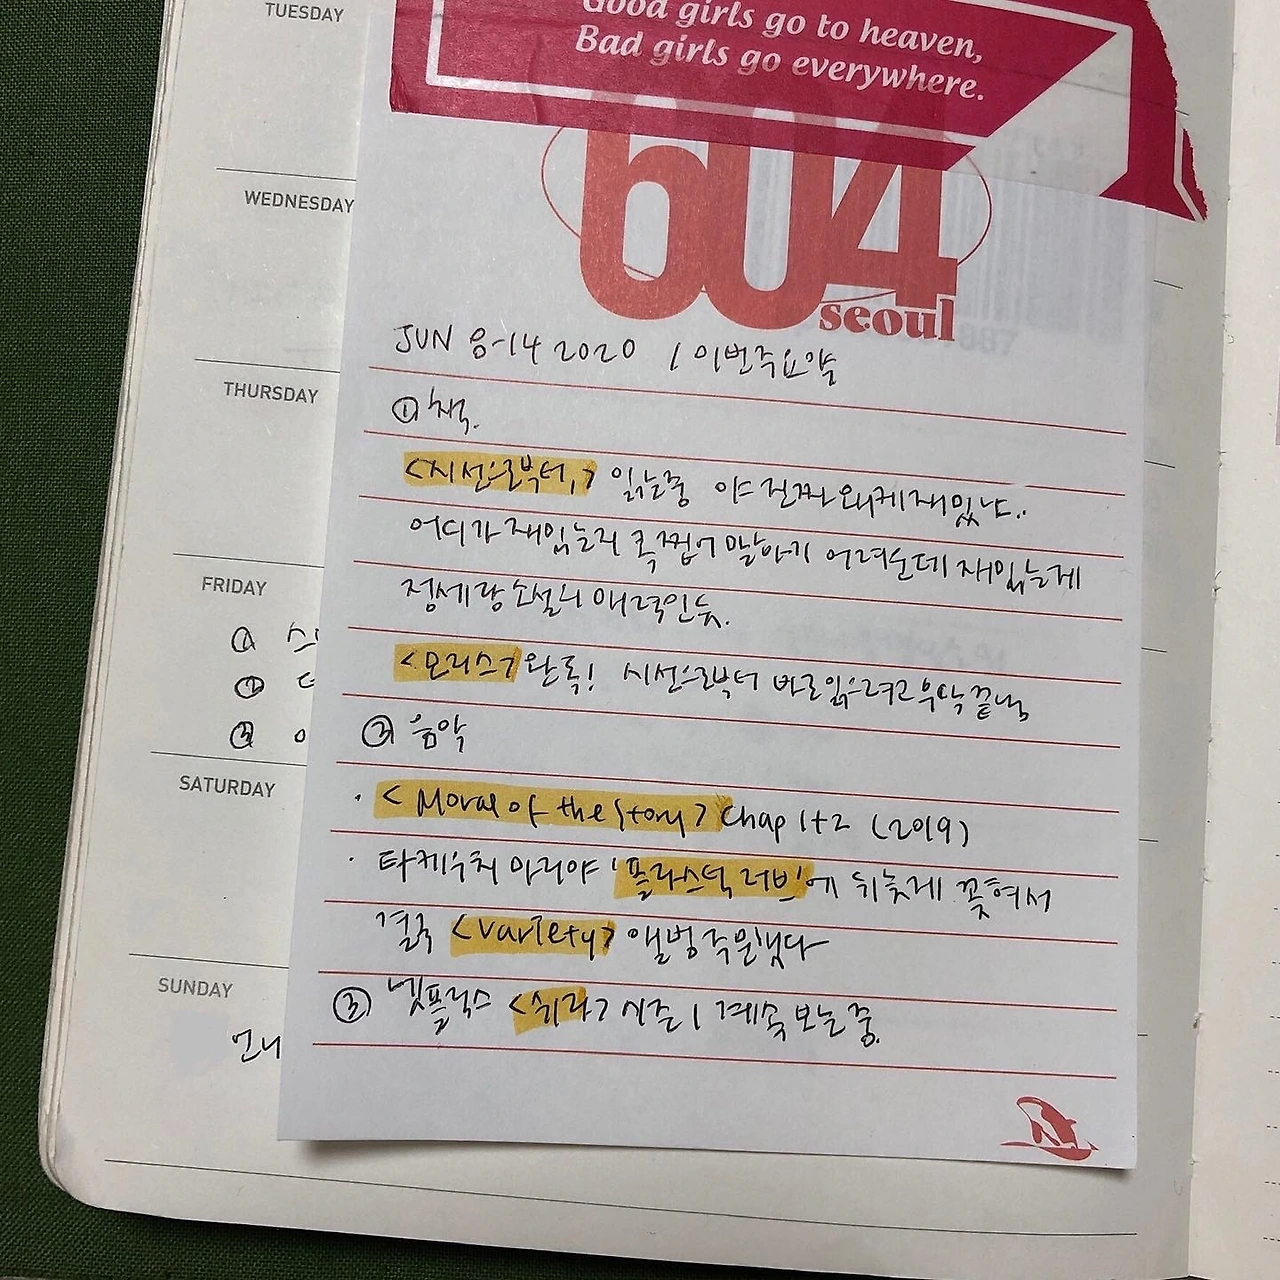 TUESDAY
Good girls go to heaven,
Bad girls go everywhere.
WEDNESDAY
604
seoul
JUN 8-14 2020 / 이번주요약
THURSDAY
① 책.
<시선으로부터,> 읽는중 아 진짜 왜케재밌냐..
어디가 재밌는지 콕 찝어 말하기 어려운데 재밌는게
FRIDAY
정세랑 소설의 매력인듯.
① 스
<모리스> 완독! 시선으로부터 바로읽으려고 후딱 끝냄
②
③
② 음악
SATURDAY
· <Moral of the Story> Chap 1+2 (2019)
· 타케우치 마리야 '플라스틱 러브'에 뒤늦게 꽂혀서
결국 <Variety> 앨범 주문했다
SUNDAY
③ 넷플릭스 <쉬라> 시즌 1 계속 보는 중.
언니